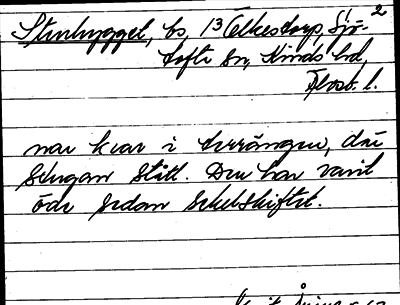 2
Stenbyggel, bs, 13 Ölkestorp, Sjö-
tofta sn, Kinds hd,
Älvsb. l.
nar kvar i terrängen, där
stugan stått. Den har varit
öde sedan sekelskiftet.